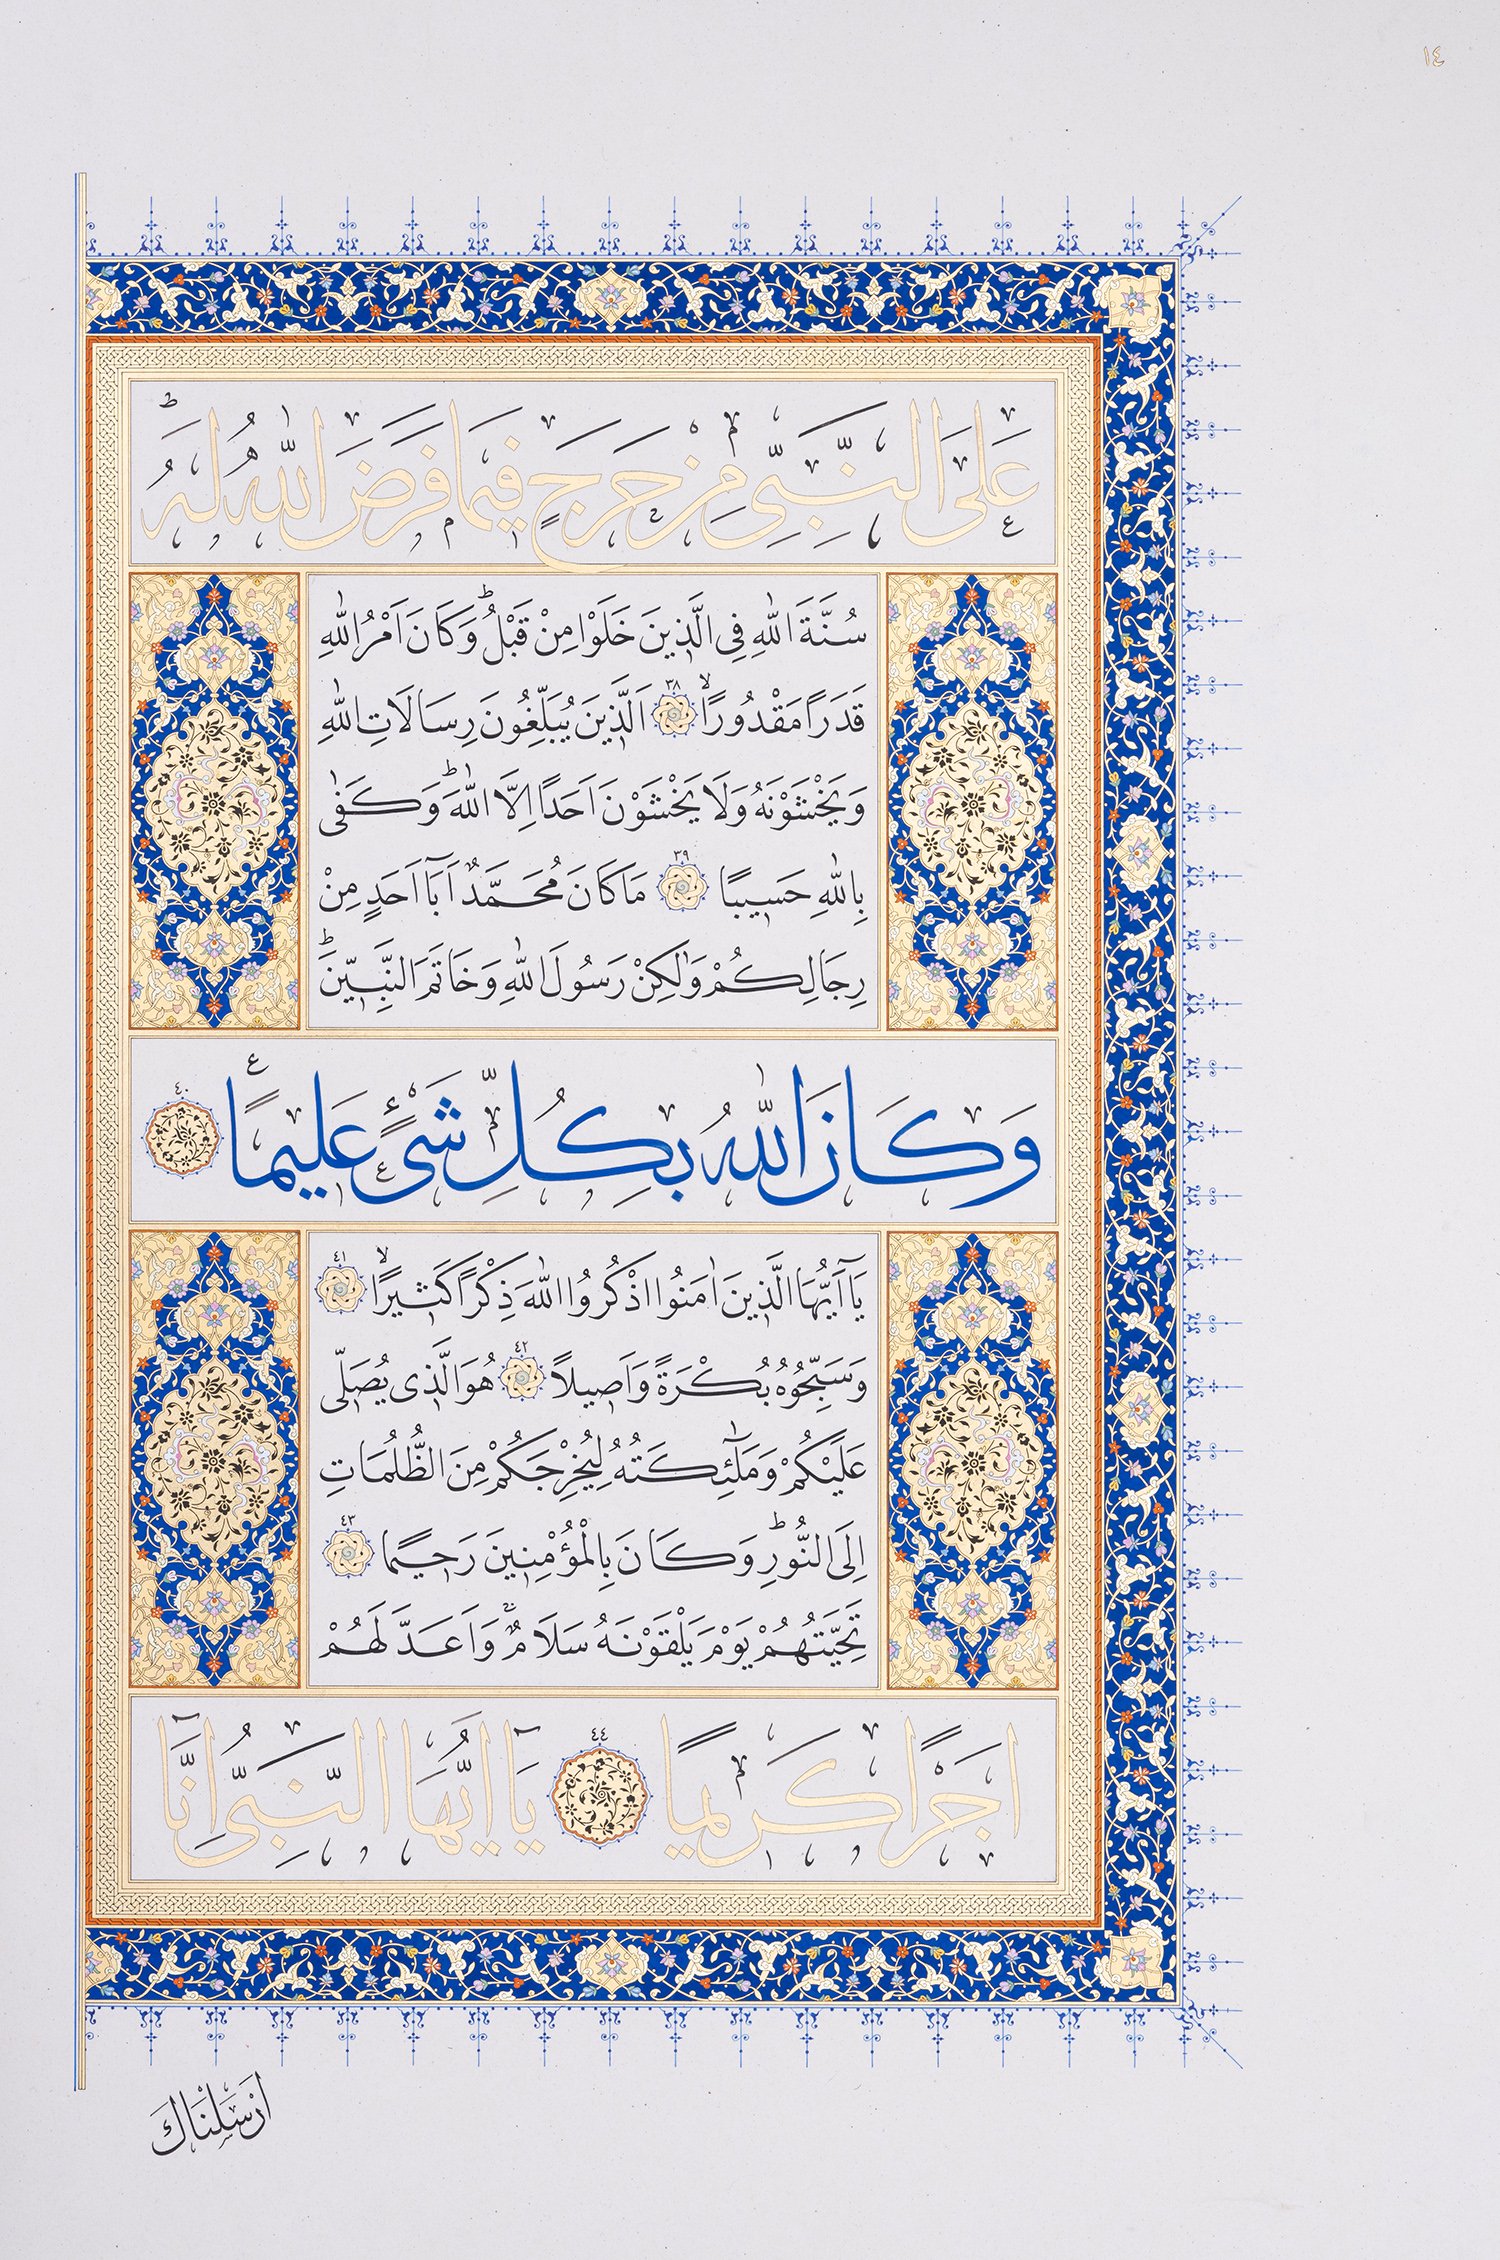 ١٤
عَلَى النَّبِيِّ مِنْ حَرَجٍ فِيمَا فَرَضَ اللّٰهُ لَهُ ؕ
سُنَّةَ اللّٰهِ فِي الَّذِينَ خَلَوْا مِنْ قَبْلُ ؕ وَكَانَ اَمْرُ اللّٰهِ
قَدَرًا مَقْدُورًا ۙ ٣٨ اَلَّذِينَ يُبَلِّغُونَ رِسَالَاتِ اللّٰهِ
وَيَخْشَوْنَهُ وَلَا يَخْشَوْنَ اَحَدًا اِلَّا اللّٰهَ ؕ وَكَفٰى
بِاللّٰهِ حَسِيبًا ٣٩ مَا كَانَ مُحَمَّدٌ اَبَٓا اَحَدٍ مِنْ
رِجَالِكُمْ وَلٰكِنْ رَسُولَ اللّٰهِ وَخَاتَمَ النَّبِيّٖنَ ؕ
وَكَانَ اللّٰهُ بِكُلِّ شَيْءٍ عَلِيمًا ع ٤٠
يَٓا اَيُّهَا الَّذِينَ اٰمَنُوا اذْكُرُوا اللّٰهَ ذِكْرًا كَثِيرًا ۙ ٤١
وَسَبِّحُوهُ بُكْرَةً وَاَصِيلًا ٤٢ هُوَ الَّذِى يُصَلِّى
عَلَيْكُمْ وَمَلٰٓئِكَتُهُ لِيُخْرِجَكُمْ مِنَ الظُّلُمَاتِ
اِلَى النُّورِ ؕ وَكَانَ بِالْمُؤْمِنِينَ رَحِيمًا ٤٣
تَحِيَّتُهُمْ يَوْمَ يَلْقَوْنَهُ سَلَامٌ ۚ وَاَعَدَّ لَهُمْ
اَجْرًا كَرِيمًا ٤٤ يَٓا اَيُّهَا النَّبِيُّ اِنَّٓا
اَرْسَلْنَاكَ